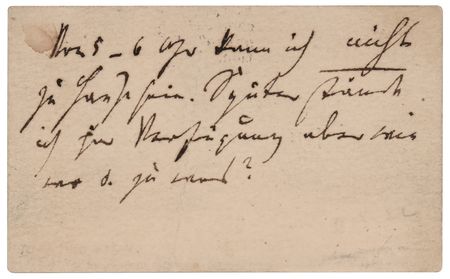 Von 5 – 6 Uhr kann ich nicht
zu Hause sein. Später stände
ich zur Verfügung aber wie
wo d. zu